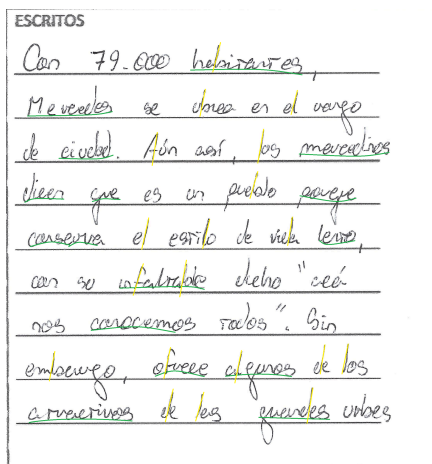 ESCRITOS
Con 79.000 habitantes,
Mercedes se ubica en el rango
de ciudad. Aún así, los mercedinos
dicen que es un pueblo porque
conserva el estilo de vida lento,
con su infaltable dicho "acá
nos conocemos todos". Sin
embargo, ofrece algunos de los
atractivos de las grandes urbes